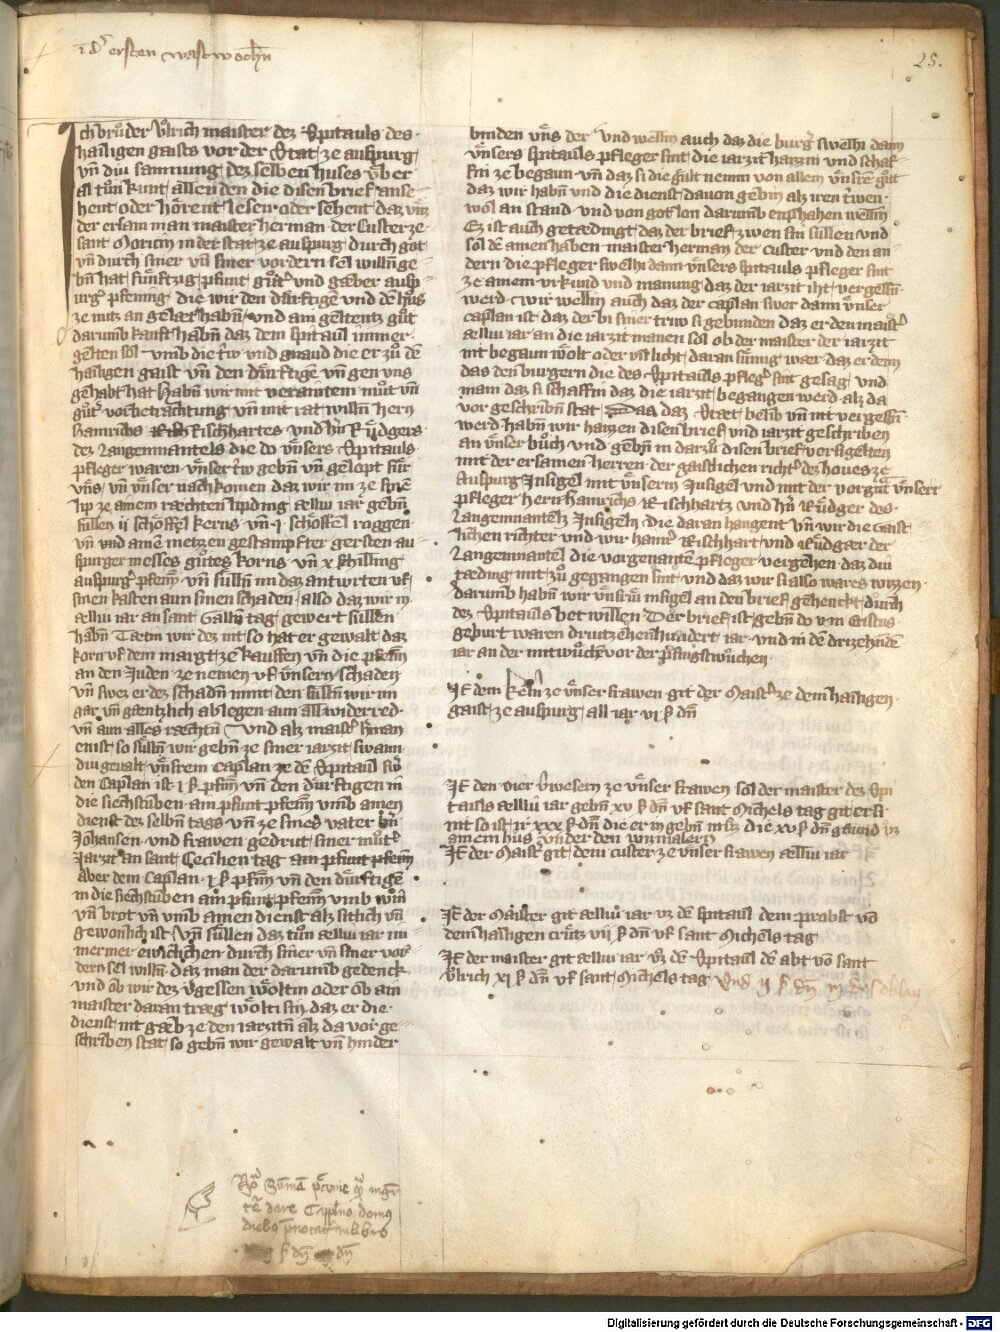 i dˢ ersten vastwochn
25.
Ich bruͦder Uͦlrich maister dez Spitauls des
hailigen gaists vor der Stat ze auspurg
vn̄ diu samnung dez selben huses v̂ber
al tuͦn kunt allen den die disen brief anse
hent oder hoͤrent lesen oder sehent daz vnz
der ersam man maister herman der Custer ze
sant Moricin in der stat ze auspurg durch got
vn̄ durch siner vn̄ siner vordern sel willn̄ ge
bn̄ hat fuͤnftzig pfunt guͦtˢ vnd gaͤber ausp
urgˢ pfening die wir den duͤrftigē vnd dē hus
ze nutz an gelaet habn̄ vnd am geltentz guͦt
darumb kauft habn̄ daz dem spitaul immer
gelten sol vmb die triw vnd gnaud die er zuͦ dē
hailigen gaist vn̄ den duͤrftigē vn̄ gen vns
gehabt hat habn̄ wir mit veraintem muͦt vn̄
guͦtˢ vorbetrachtung vn̄ mit rat willn̄ hern
Hainrichs Rischhartes vnd hn̄ Ruͤdgers
dez Langenmantels die do vnsers Spitauls
pfleger waren vnser triw gebn̄ vn̄ gelopt fuͤr
vns vn̄ vnser nachkomen daz wir im ze sinē
lip ze ainem raechten lipding aelliu iar gebn̄
suͤllen ij schoͤffel kerns vn̄ i schoͤffel roggen
vn̄ vnd ainē metzen gestampfter gersten au
spurger messes guͦtes korns vn̄ x schilling
auspurgˢ pfenn̄ vn̄ sulln̄ im daz antwrten vf
sinen kasten aun sinen schaden also daz wir in
aelliu iar an sant Galln̄ tag gewert suͤllen
habn̄ Taetin wir dez nit so hat er gewalt daz
korn vf dem margt ze kauffen vn̄ die pfenn̄
an den Juden ze nemen vf vnsern schaden
vn̄ swez er dez schadn̄ nimt den suͤlln̄ wir im
gar vn̄ gaentzlich ablegen aun all widerred
vn̄ aun alles raechtn̄ vnd alz maistˢ hˢman
enist so suͤlln̄ wir gebn̄ ze siner iarzit swann
diu geualt vnsrem Caplan ze dē Spitaul swˢ
den Caplan ist i ß pfenn̄ vn̄ den duͤrftigen in
die siechstuben am pfunt pfenn̄ vmb ainen
dienst dez selbn̄ tags vn̄ ze sines vater hn̄
Johansen vnd frawen gedrut siner muͦtˢ
Jarzit an sant Cecilien tag am pfunt pfenn̄
Aber dem Caplan i ß pfenn̄ vn̄ den duͤrftigē
in die siechstuben am pfunt pfenn̄ vmb win
vn̄ brot vn̄ vmb ainen dienst alz sitlich vn̄
gewonlich ist vn̄ suͤllen daz tuͦn aelliu iar im
mermer ewiclichen durch siner vn̄ siner vorˢ
dern sel willn̄ daz man der darumb gedenck
vnd ob wir dez v̂gessen woͤltin oder ob ain
maister daran traeg woͤlti sin daz er die
dienst nit gaeb ze den iarzitn̄ alz da vor ge
schriben stat so gebn̄ wir gewalt vn̄ hinder
binden vns der vnd welln̄ auch daz die burgˢ swelhi dann
vnsers spitauls pfleger sint die iarzit haizzn̄ vnd schaf
fn̄ ze begaun vn̄ daz si die guͤlt nemn von allem vnsrē guͦt
daz wir habn̄ vnd die dienst dauon gebn̄ alz iren triwen
wol an stand vnd von got lon darumb enphahen welln̄
Ez ist auch getaedingt daz der brief zwen sin suͤllen vnd
sol dē ainen haben maister herman der custer vnd den an
dern die pfleger swelhi dann vnsers spitauls pfleger sint
ze ainem vrkund vnd manung daz der iarzit iht vergessn̄
werd wir welln̄ auch daz der caplan swer dann vnser
caplan ist daz der bi siner triw si gebunden daz er den maistˢ
aelliu iar an die iarzit manen sol ob der maister der iarzit
nit begaun woͤlt oder vil licht daran suͤmig waer daz er denn
das den burgern die des Spitauls pflegˢ sint gesag vnd
main daz si schaffin daz die iarzit begangen werd alz da
vor geschribn̄ stat Daz daz staet belib vn̄ nit vergessn̄
werd habn̄ wir haizzen disen brief vnd iarzit geschriben
an vnser buͦch vnd gebn̄ in darzuͦ disen brief versigelten
mit der ersamen herren der gaistlichen richtˢ dez houes ze
auspurg Insigel mit vnserm Insigel vnd mit der vorgnt̄ vnsers
pfleger hern hainrichs Rischhartz vnd hn̄ Ruͤdger des
Langenmantelz Insigeln die daran hangent vn̄ wir die Gaist
lichen richter vnd wir hainrˢ Rischhart vnd Ruͤdgaer der
Langenmantel die vorgenantē pfleger vergehen daz diu
taeding mit zuͦ gegangen sint vnd daz wir si also wares wizzen
darumb habn̄ wir vnsriu insigel an den brief gehenckt durch
dez Spitauls bet willen Der brief ist gebn̄ do von Cristus
geburt waren driutzehenhundert iar vnd in dē drizehendē
iar an der mitwuͤchē vor der pfingstwuͦchen
Jt̄ dem kelnˢ ze vnser frawen git der Maistˢ ze dem hailigen
gaist ze auspurg all iar vi ß dn̄
Jt̄ den vier v̂wesern ze vnser frawen sol der maister dez Spi
tauls aelliu iar gebn̄ xv ß dn̄ vf sant Michels tag git er si
nit so ist ir xxx ß dn̄ die er in gebn̄ muͤz die xv ß dn̄ gaund vz
ainem hus vnder den winmalern
Jt̄ der Maistˢ git dem custer ze vnser frawen aelliu iar
Jt̄ der Maister git aelliu iar vz dē spitaul dem probst vō
dem hailigen cruͤtz vii ß dn̄ vf sant Michels tag
Jt̄ der maister git aelliu iar vz dē Spitaul dē abt vō sant
Uͦlrich xi ß dn̄ vf sant Michels tag Vnd ij ß dn̄
dare Capplno domus
ß dn̄ dn̄
Digitalisierung gefördert durch die Deutsche Forschungsgemeinschaft - DFG